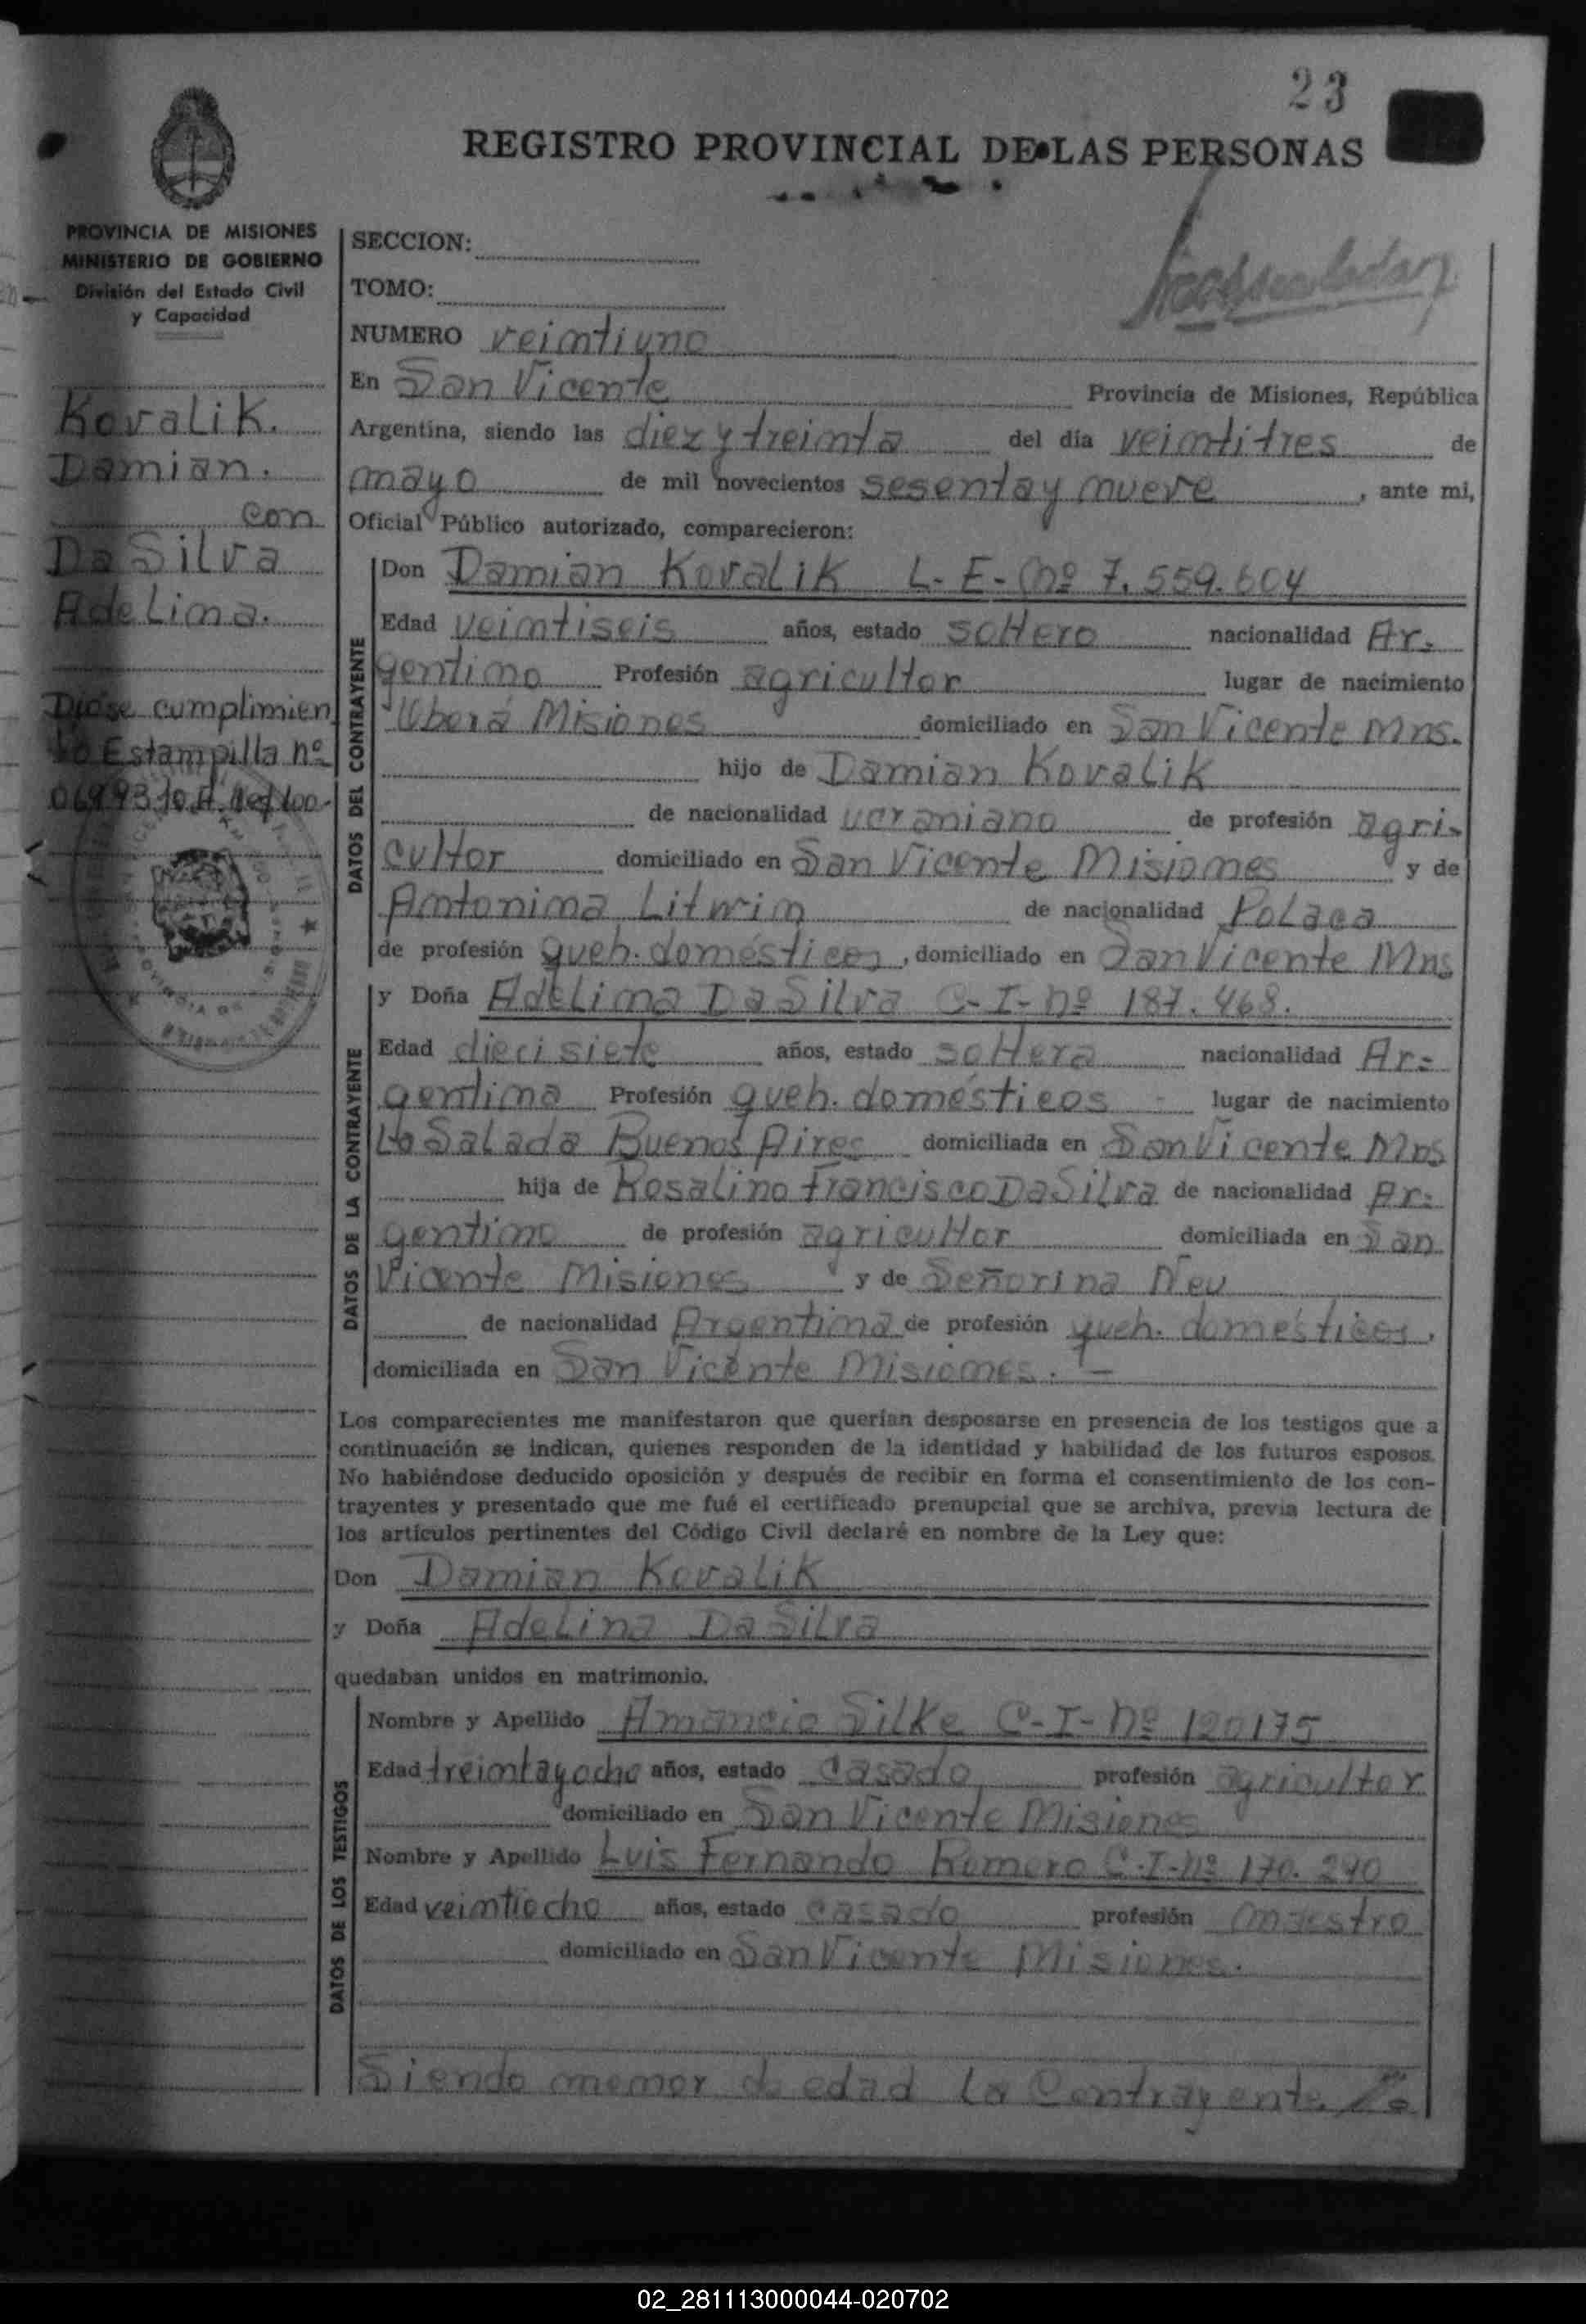 23
REGISTRO PROVINCIAL DE LAS PERSONAS
PROVINCIA DE MISIONES
MINISTERIO DE GOBIERNO
División del Estado Civil
y Capacidad
Kovalik.
Damian.
con
DaSilva
Adelina.
Dióse cumplimien
to Estampilla nº
SECCION:
TOMO:
NUMERO veintiuno
En San Vicente Provincia de Misiones, República
Argentina, siendo las diez y treinta del día veintitres de
mayo de mil novecientos sesenta y nueve, ante mi,
Oficial Público autorizado, comparecieron:
DATOS DEL CONTRAYENTE
Don Damian Kovalik L-E-Nº 7.559.604
Edad veintiseis años, estado soltero nacionalidad Ar-
gentino Profesión agricultor lugar de nacimiento
Uberá Misiones domiciliado en San Vicente Mns.
hijo de Damian Kovalik
de nacionalidad ucraniano de profesión agri-
cultor domiciliado en San Vicente Misiones y de
Antonina Litwin de nacionalidad Polaca
de profesión queh. domésticos, domiciliado en San Vicente Mns
DATOS DE LA CONTRAYENTE
y Doña Adelina DaSilva C-I-nº 187.468.
Edad diecisiete años, estado soltera nacionalidad Ar-
gentina Profesión queh. domésticos - lugar de nacimiento
La Salada Buenos Aires domiciliada en San Vicente Mns
hija de Rosalino Francisco DaSilva de nacionalidad Ar-
gentino de profesión agricultor domiciliada en San
Vicente Misiones y de Señorina Neu
de nacionalidad Argentina de profesión queh. domesticos,
domiciliada en San Vicente Misiones. -
Los comparecientes me manifestaron que querían desposarse en presencia de los testigos que a
continuación se indican, quienes responden de la identidad y habilidad de los futuros esposos.
No habiéndose deducido oposición y después de recibir en forma el consentimiento de los con-
trayentes y presentado que me fué el certificado prenupcial que se archiva, previa lectura de
los artículos pertinentes del Código Civil declaré en nombre de la Ley que:
Don Damian Kovalik
y Doña Adelina DaSilva
quedaban unidos en matrimonio.
DATOS DE LOS TESTIGOS
Nombre y Apellido Amancio Silke C-I-nº 120175
Edad treintayocho años, estado casado profesión agricultor
domiciliado en San Vicente Misiones
Nombre y Apellido Luis Fernando Romero C-I-nº 170.290
Edad veintiocho años, estado casado profesión maestro
domiciliado en San Vicente Misiones.
Siendo menor de edad la Contrayente
02_281113000044-020702